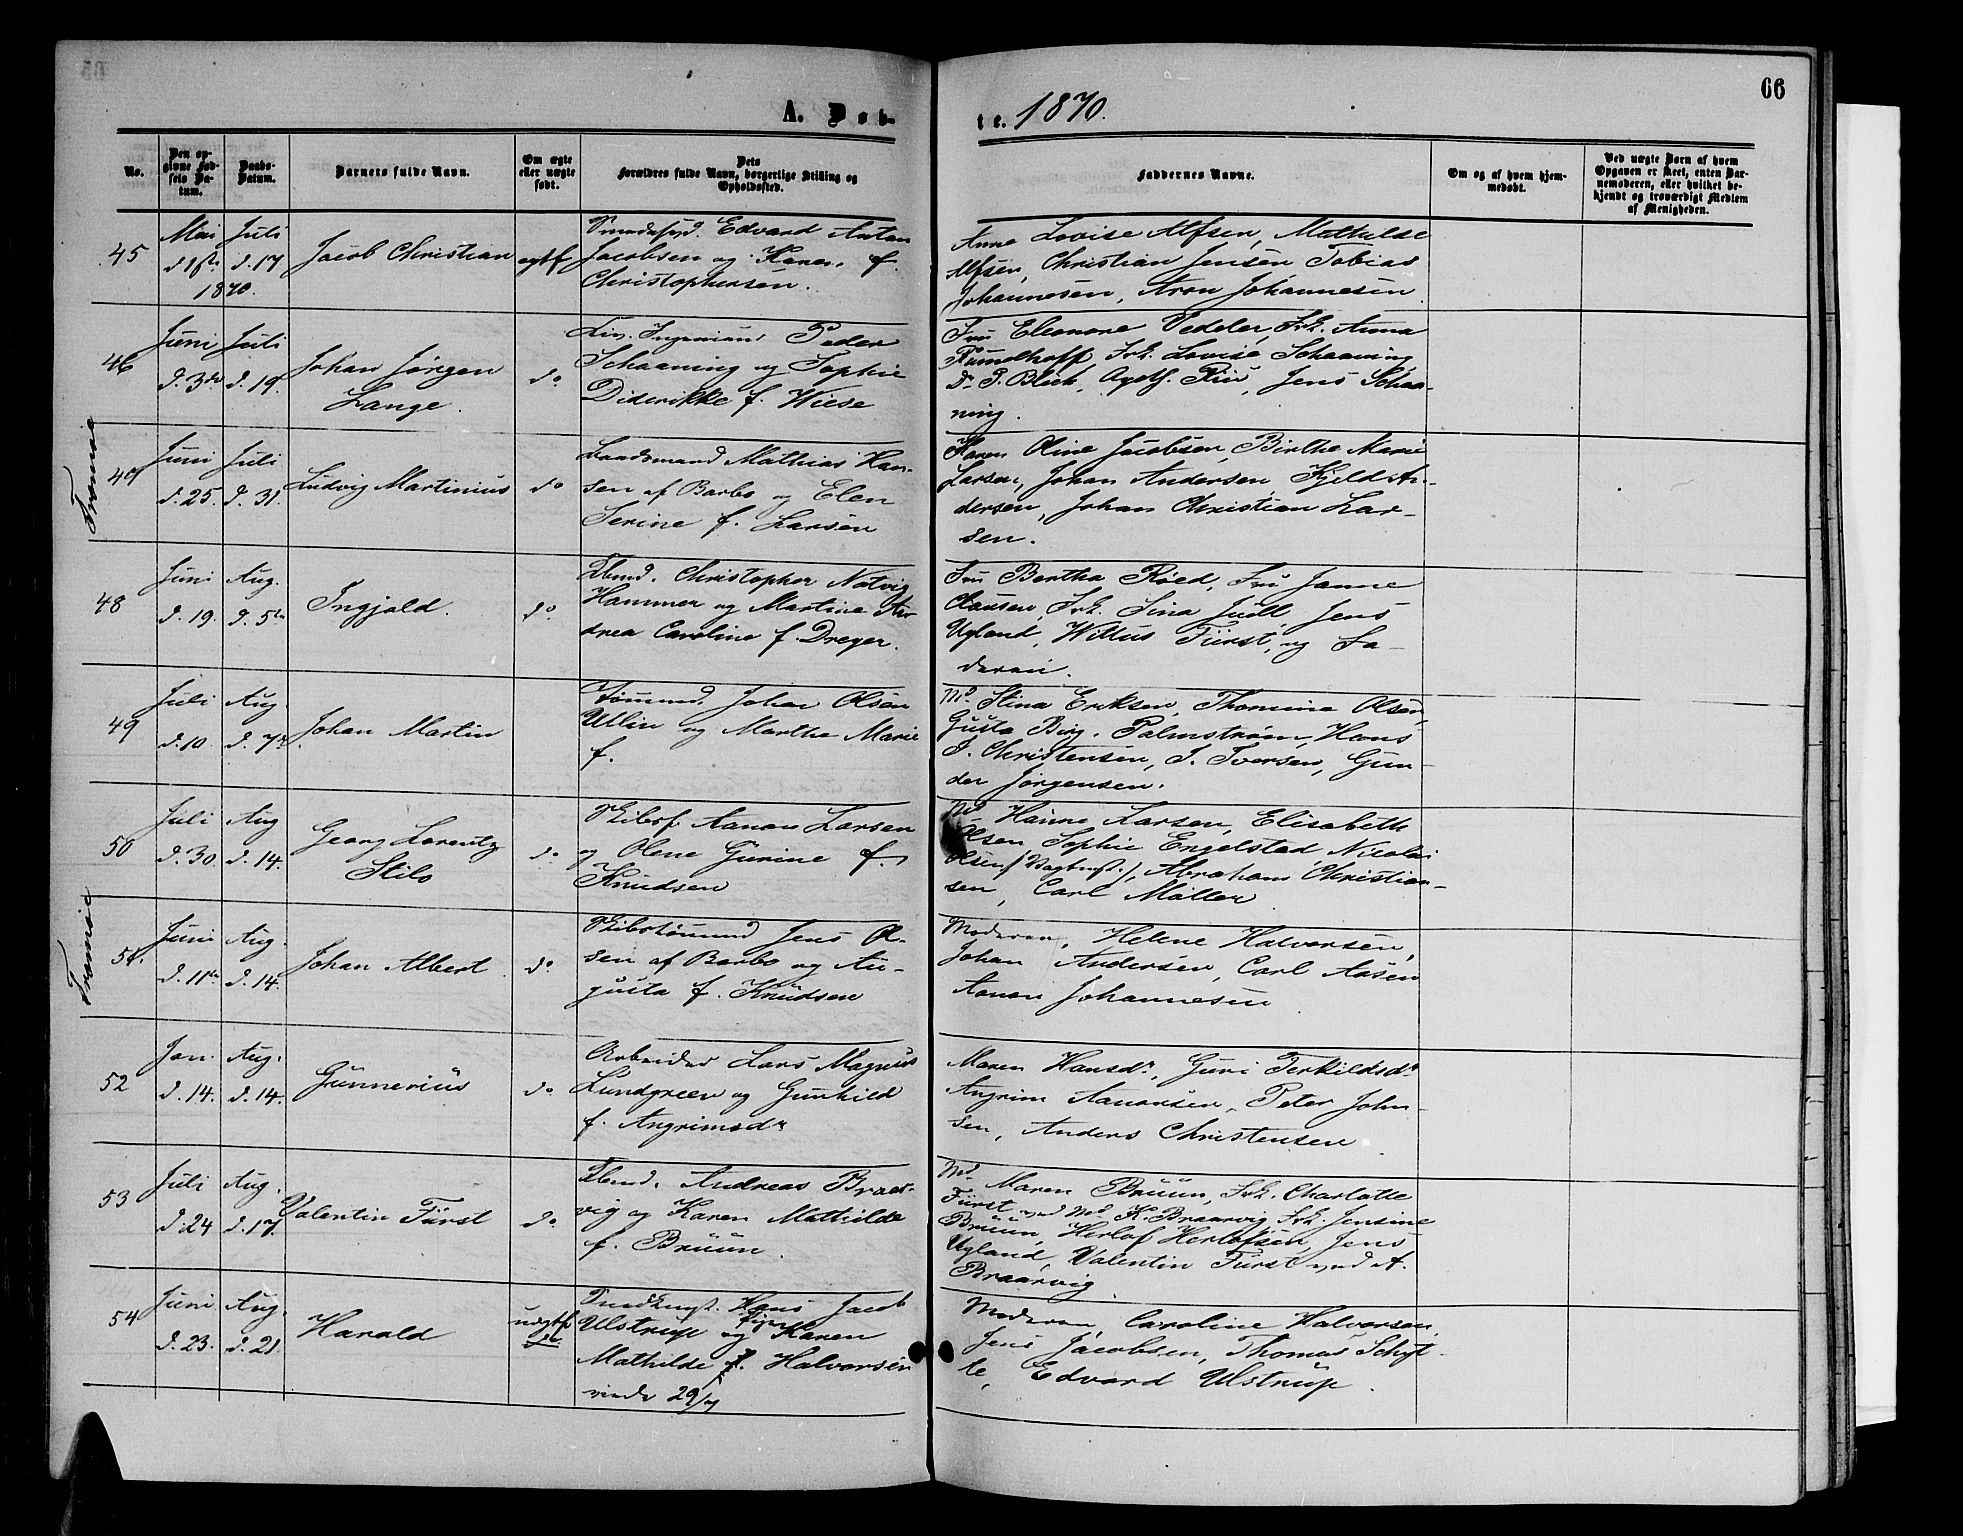 66
A. Døb-
te. 1870.
No.
Den op-
givne Fød-
sels Da-
tum.
Daabs-
Datum.
Barnets fulde Navn.
Om ægte
eller uægte
født.
Dets
Forældres fulde Navn, borgerlige Stilling og
Opholdssted.
Faddernes Navne.
Om og af hvem hjem-
medøbt.
Ved uægte Børn af hvem
Opgaven er skeet, enten Bar-
nemoderen, eller hvilket be-
kjendt og troværdigt Medlem
af Menigheden.
45
Mai
1870.
Juli
d. 17
Jacob Christian
Edvard Anton
Jacobsen og Karen f.
Christophersen.
Anne Lovise Alfsen, Mathilde
Alfsen, Christian Jensen Tobias
Johannesen, Aron Johannesen
46
Juni
d. 3die
Juli
d. 19.
Johan Jørgen
Lange.
do
Peder
Schaaning og Sophie
Diderikke f. Wiese
Fru Eleonore Vedeler, Frk. Anna
Rumelhoff, Frk. Lovise Schaaning
Dr. P. Blich, Apoth. Riis, Jens Schaa-
ning.
Tromøe
47
Juni
d. 25.
Juli
d. 31.
Ludvig Martinius
do
Baadsmand Mathias Han-
sen af Barbo og Elen
Serine f. Larsen
Karen Oline Jacobsen, Birthe Marie
Larsen, Johan Andersen Kjeld An-
dersen, Johan Christian Lar-
sen.
48
Juni
d. 19.
Aug.
d. 5te
Ingjald.
do
Christopher Natvig
Hammer og Martine An-
drea Caroline f. Dreyer.
Fru Bertha Röed, Fru Janne
Clausen, Frk. Lina Juell, Jens
Ugland, Wittus Fürst, og Fa-
deren.
49
Juli
d. 10.
Aug.
d. 7de
Johan Martin
Tømmmd. Johan Olsen
Ullin og Marthe Marie
f.
Md. Stina Eriksen, Thomine Olsen,
Gusta Birg. Palmstrøm, Hans
J. Christensen, J. Iversen, Gun-
der Jørgensen.
50
Juli
d. 30.
Aug
d. 14.
Georg Lorentz
Stilo
do
Skibsf. Aanon Larsen
og Olene Gurine f.
Knudsen
Md. Hanne Larsen, Elisabeth
Olsen, Sophie Engelstad Nicolai
Olsen, Abraham Christian-
sen, Carl Møller
Tromøe
51.
Juni
d. 11te
Aug.
d. 14.
Johan Albert
do
Skibstømmd Jens Ol-
sen af Barbo og Au-
gusta f. Knudsen
Moderen, Helene Halvorsen,
Johan Andersen, Carl Aasen
Aanon Johannesen
52
Jan.
d. 14.
Aug.
d. 14.
Gunnerius
do
Arbeider Lars Magnus
Lundgreen og Gunhild
f. Angrimsdr
Maren Hansdr, Guri Terkildsdr
Angrim Aanonsen, Peter John-
sen, Anders Christensen
53
Juli
d. 24
Aug.
d. 17.
Valentin Fürst
do
Andreas Braar-
vig og Karen Mathilde
f. Bruun.
Md. Maren Bruun, Frk. Charlotte
Fürst ved Md. K. Braarvig Frk. Jensine
Bruun, Herlof Herlofsen, Jens
Ugland, Valentin Fürst ved A.
Braarvig
54
Juni
d. 23.
Aug.
d. 21.
Harald
Hans Jacob
Ulstrup og Pige Karen
Mathilde f. Halvorsen
Moderen, Caroline Halvorsen,
Jens Jacobsen, Thomas Schyt-
te, Edvard Ulstrup.